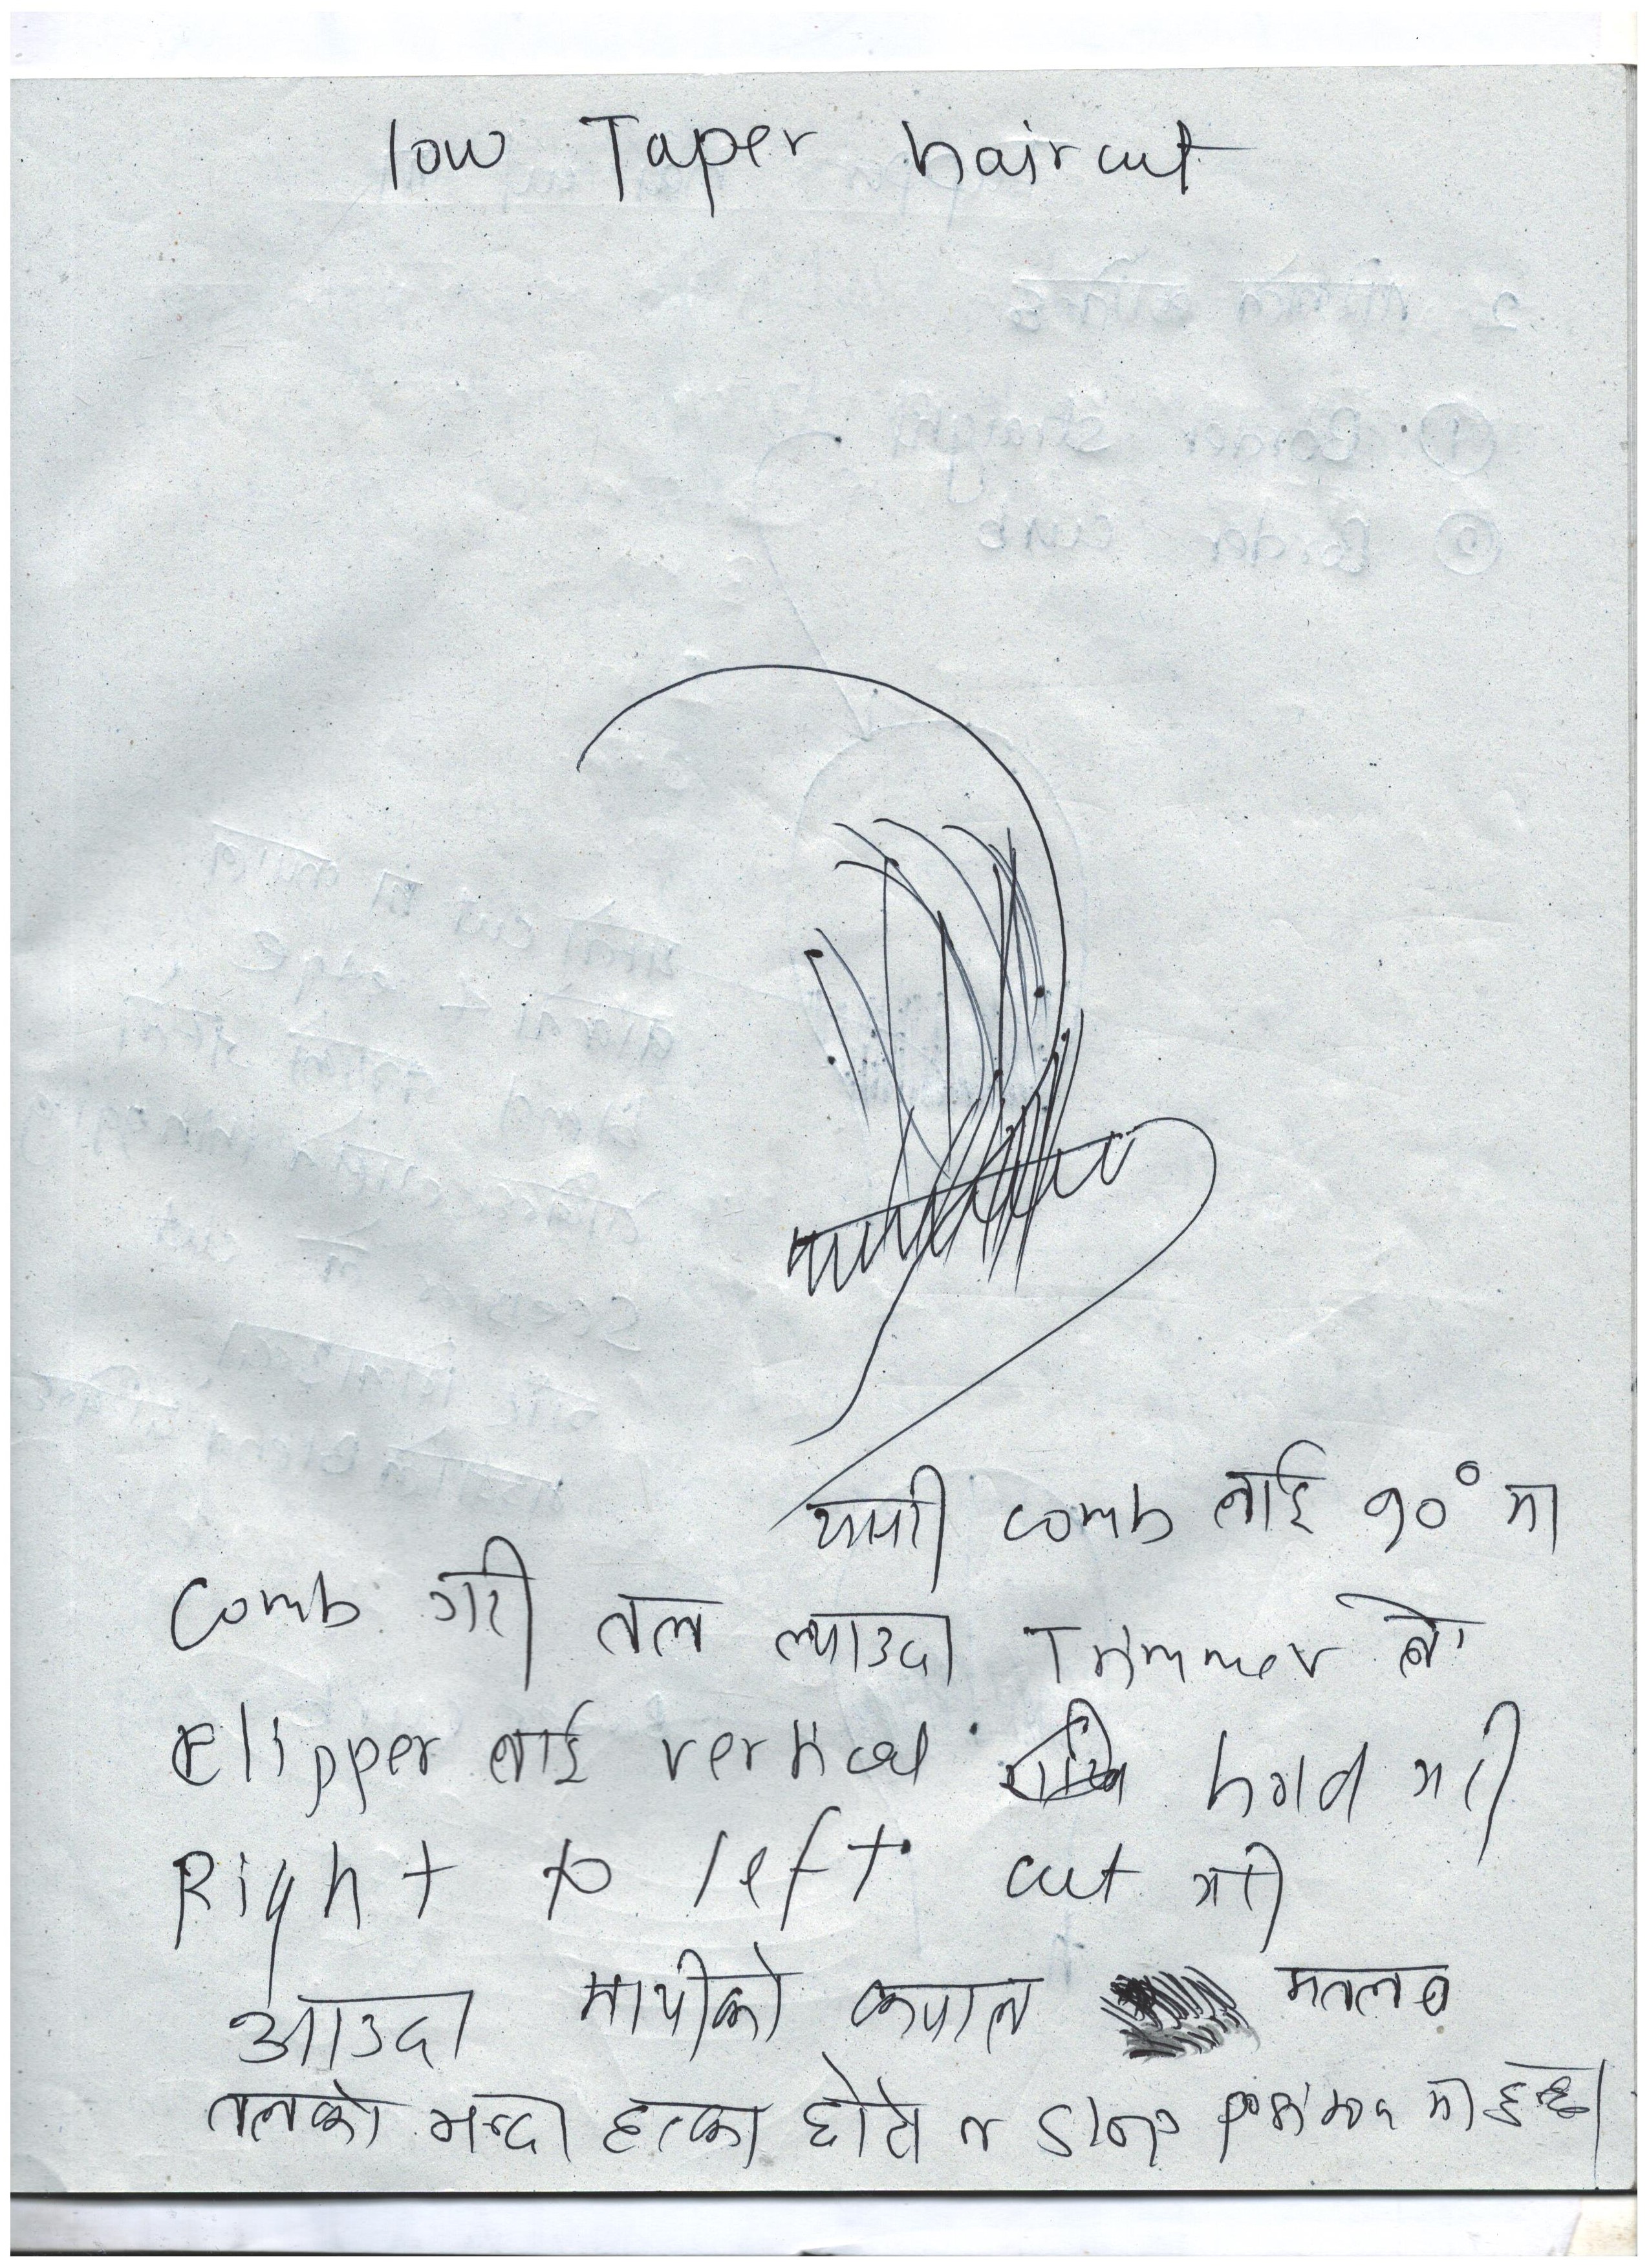 low Taper haircut
यसरी comb लाई ९०° मा
comb गरी तल ल्याउदा Trimmer ले
clipper लाई vertical hold गरी
Right to left cut गरी
आउदा माथीको कपाल मतलब
तलको भन्दा हल्का छोटो र slop मा हुन्छ।